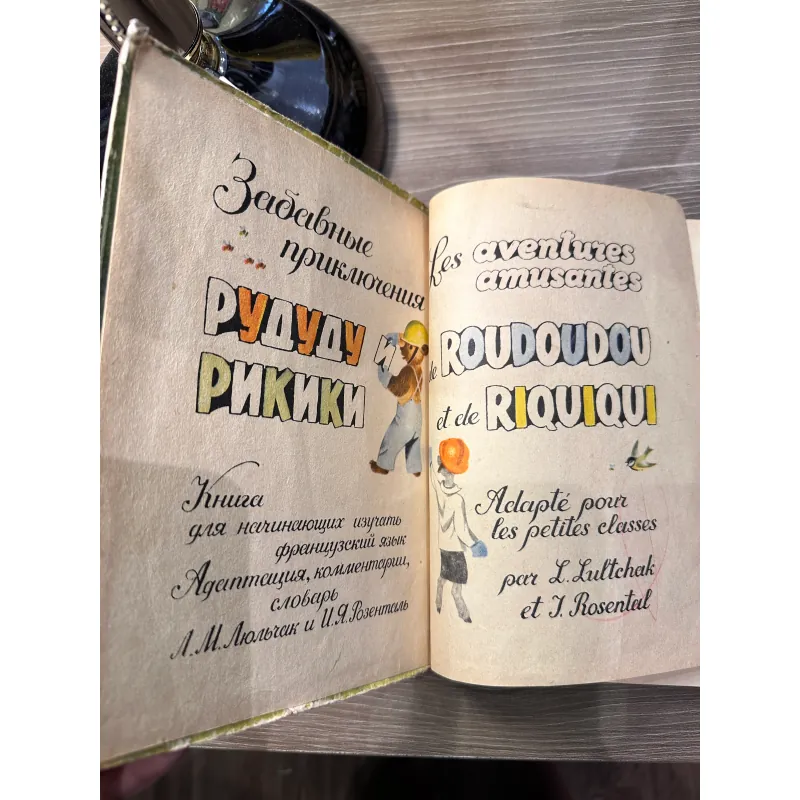 Забавные
приключения
РУДУДУ и
РИКИКИ
Книга
для начинающих изучать
французский язык
Адаптация, комментарии,
словарь
Л.М.Люльчак и И.Я.Розенталь
Les aventures
amusantes
de ROUDOUDOU
et de RIQUIQUI
Adapté pour
les petites classes
par L. Lultchak
et J. Rosental